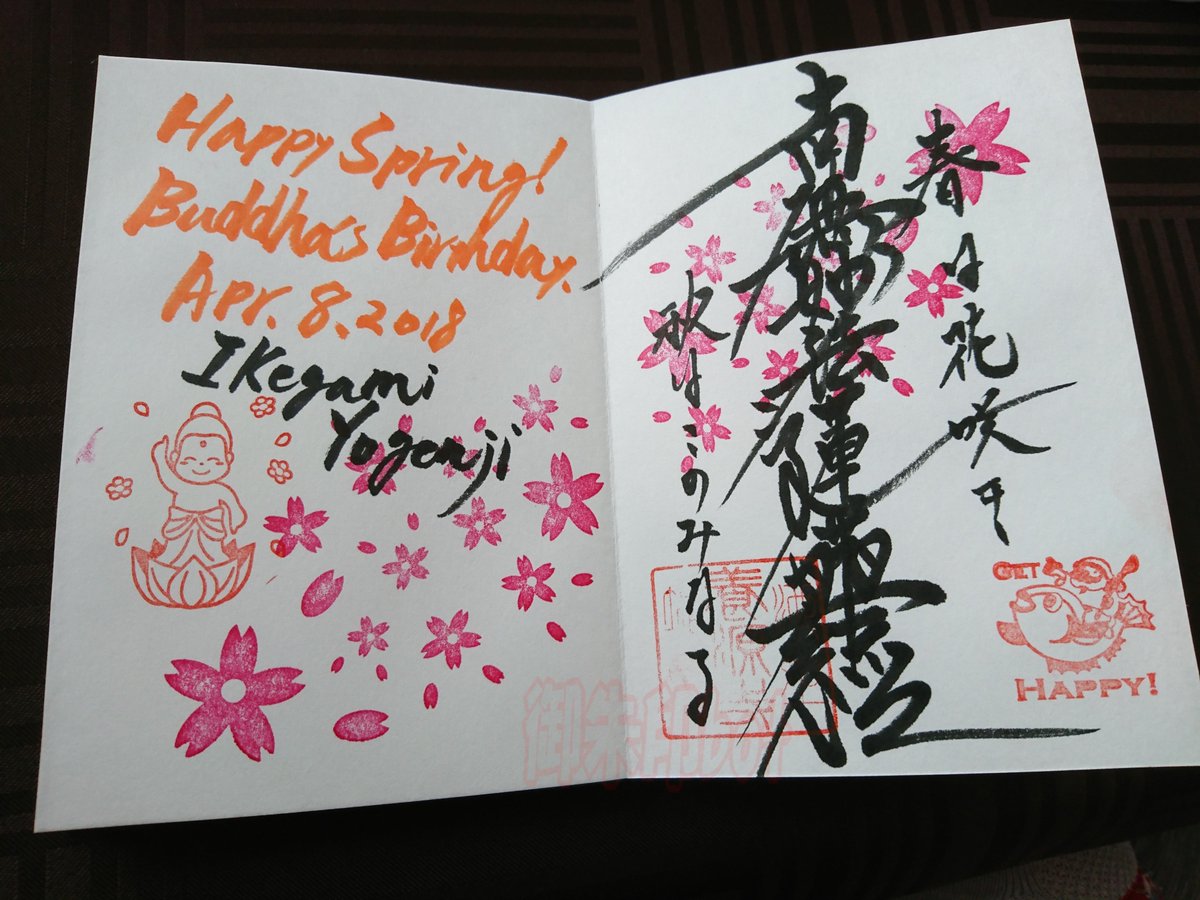 Happy Spring!
Buddha's Birthday.
Apr. 8. 2018
IKegami
Yogenji
春は花咲き
南無妙法蓮華経
秋はこのみなる
GET
HAPPY!
養源
御朱印bot